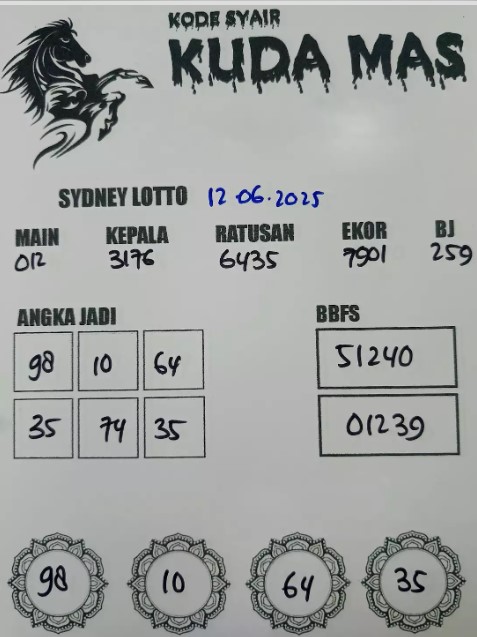 KODE SYAIR
KUDA MAS
SYDNEY LOTTO 12 06.2025
MAIN KEPALA RATUSAN EKOR BJ
012 3176 6435 7901 259
ANGKA JADI BBFS
98 10 64 51240
35 74 35 01239
98 10 64 35